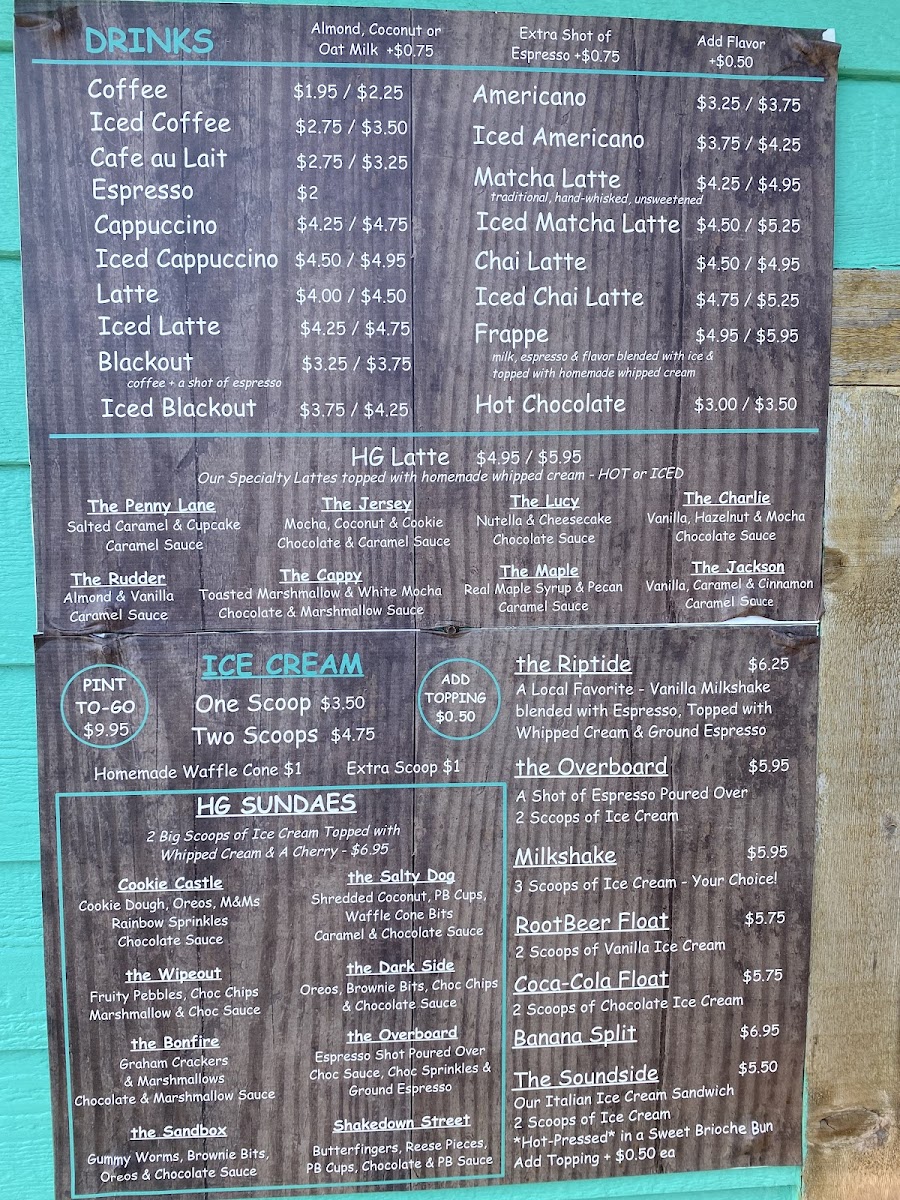 DRINKS
Almond, Coconut or
Oat Milk +$0.75
Extra Shot of
Espresso +$0.75
Add Flavor
+$0.50
Coffee $1.95 / $2.25
Iced Coffee $2.75 / $3.50
Cafe au Lait $2.75 / $3.25
Espresso $2
Cappuccino $4.25 / $4.75
Iced Cappuccino $4.50 / $4.95
Latte $4.00 / $4.50
Iced Latte $4.25 / $4.75
Blackout $3.25 / $3.75
coffee + a shot of espresso
Iced Blackout $3.75 / $4.25
Americano $3.25 / $3.75
Iced Americano $3.75 / $4.25
Matcha Latte $4.25 / $4.95
traditional, hand-whisked, unsweetened
Iced Matcha Latte $4.50 / $5.25
Chai Latte $4.50 / $4.95
Iced Chai Latte $4.75 / $5.25
Frappe $4.95 / $5.95
milk, espresso & flavor blended with ice &
topped with homemade whipped cream
Hot Chocolate $3.00 / $3.50
HG Latte $4.95 / $5.95
Our Specialty Lattes topped with homemade whipped cream - HOT or ICED
The Penny Lane
Salted Caramel & Cupcake
Caramel Sauce
The Jersey
Mocha, Coconut & Cookie
Chocolate & Caramel Sauce
The Lucy
Nutella & Cheesecake
Chocolate Sauce
The Charlie
Vanilla, Hazelnut & Mocha
Chocolate Sauce
The Rudder
Almond & Vanilla
Caramel Sauce
The Cappy
Toasted Marshmallow & White Mocha
Chocolate & Marshmallow Sauce
The Maple
Real Maple Syrup & Pecan
Caramel Sauce
The Jackson
Vanilla, Caramel & Cinnamon
Caramel Sauce
PINT
TO-GO
$9.95
ICE CREAM
One Scoop $3.50
Two Scoops $4.75
ADD
TOPPING
$0.50
Homemade Waffle Cone $1 Extra Scoop $1
HG SUNDAES
2 Big Scoops of Ice Cream Topped with
Whipped Cream & A Cherry - $6.95
Cookie Castle
Cookie Dough, Oreos, M&Ms
Rainbow Sprinkles
Chocolate Sauce
the Wipeout
Fruity Pebbles, Choc Chips
Marshmallow & Choc Sauce
the Bonfire
Graham Crackers
& Marshmallows
Chocolate & Marshmallow Sauce
the Sandbox
Gummy Worms, Brownie Bits,
Oreos & Chocolate Sauce
the Salty Dog
Shredded Coconut, PB Cups,
Waffle Cone Bits
Caramel & Chocolate Sauce
the Dark Side
Oreos, Brownie Bits, Choc Chips
& Chocolate Sauce
the Overboard
Espresso Shot Poured Over
Choc Sauce, Choc Sprinkles &
Ground Espresso
Shakedown Street
Butterfingers, Reese Pieces,
PB Cups, Chocolate & PB Sauce
the Riptide $6.25
A Local Favorite - Vanilla Milkshake
blended with Espresso, Topped with
Whipped Cream & Ground Espresso
the Overboard $5.95
A Shot of Espresso Poured Over
2 Sccops of Ice Cream
Milkshake $5.95
3 Scoops of Ice Cream - Your Choice!
RootBeer Float $5.75
2 Scoops of Vanilla Ice Cream
Coca-Cola Float $5.75
2 Scoops of Chocolate Ice Cream
Banana Split $6.95
The Soundside $5.50
Our Italian Ice Cream Sandwich
2 Scoops of Ice Cream
*Hot-Pressed* in a Sweet Brioche Bun
Add Topping + $0.50 ea